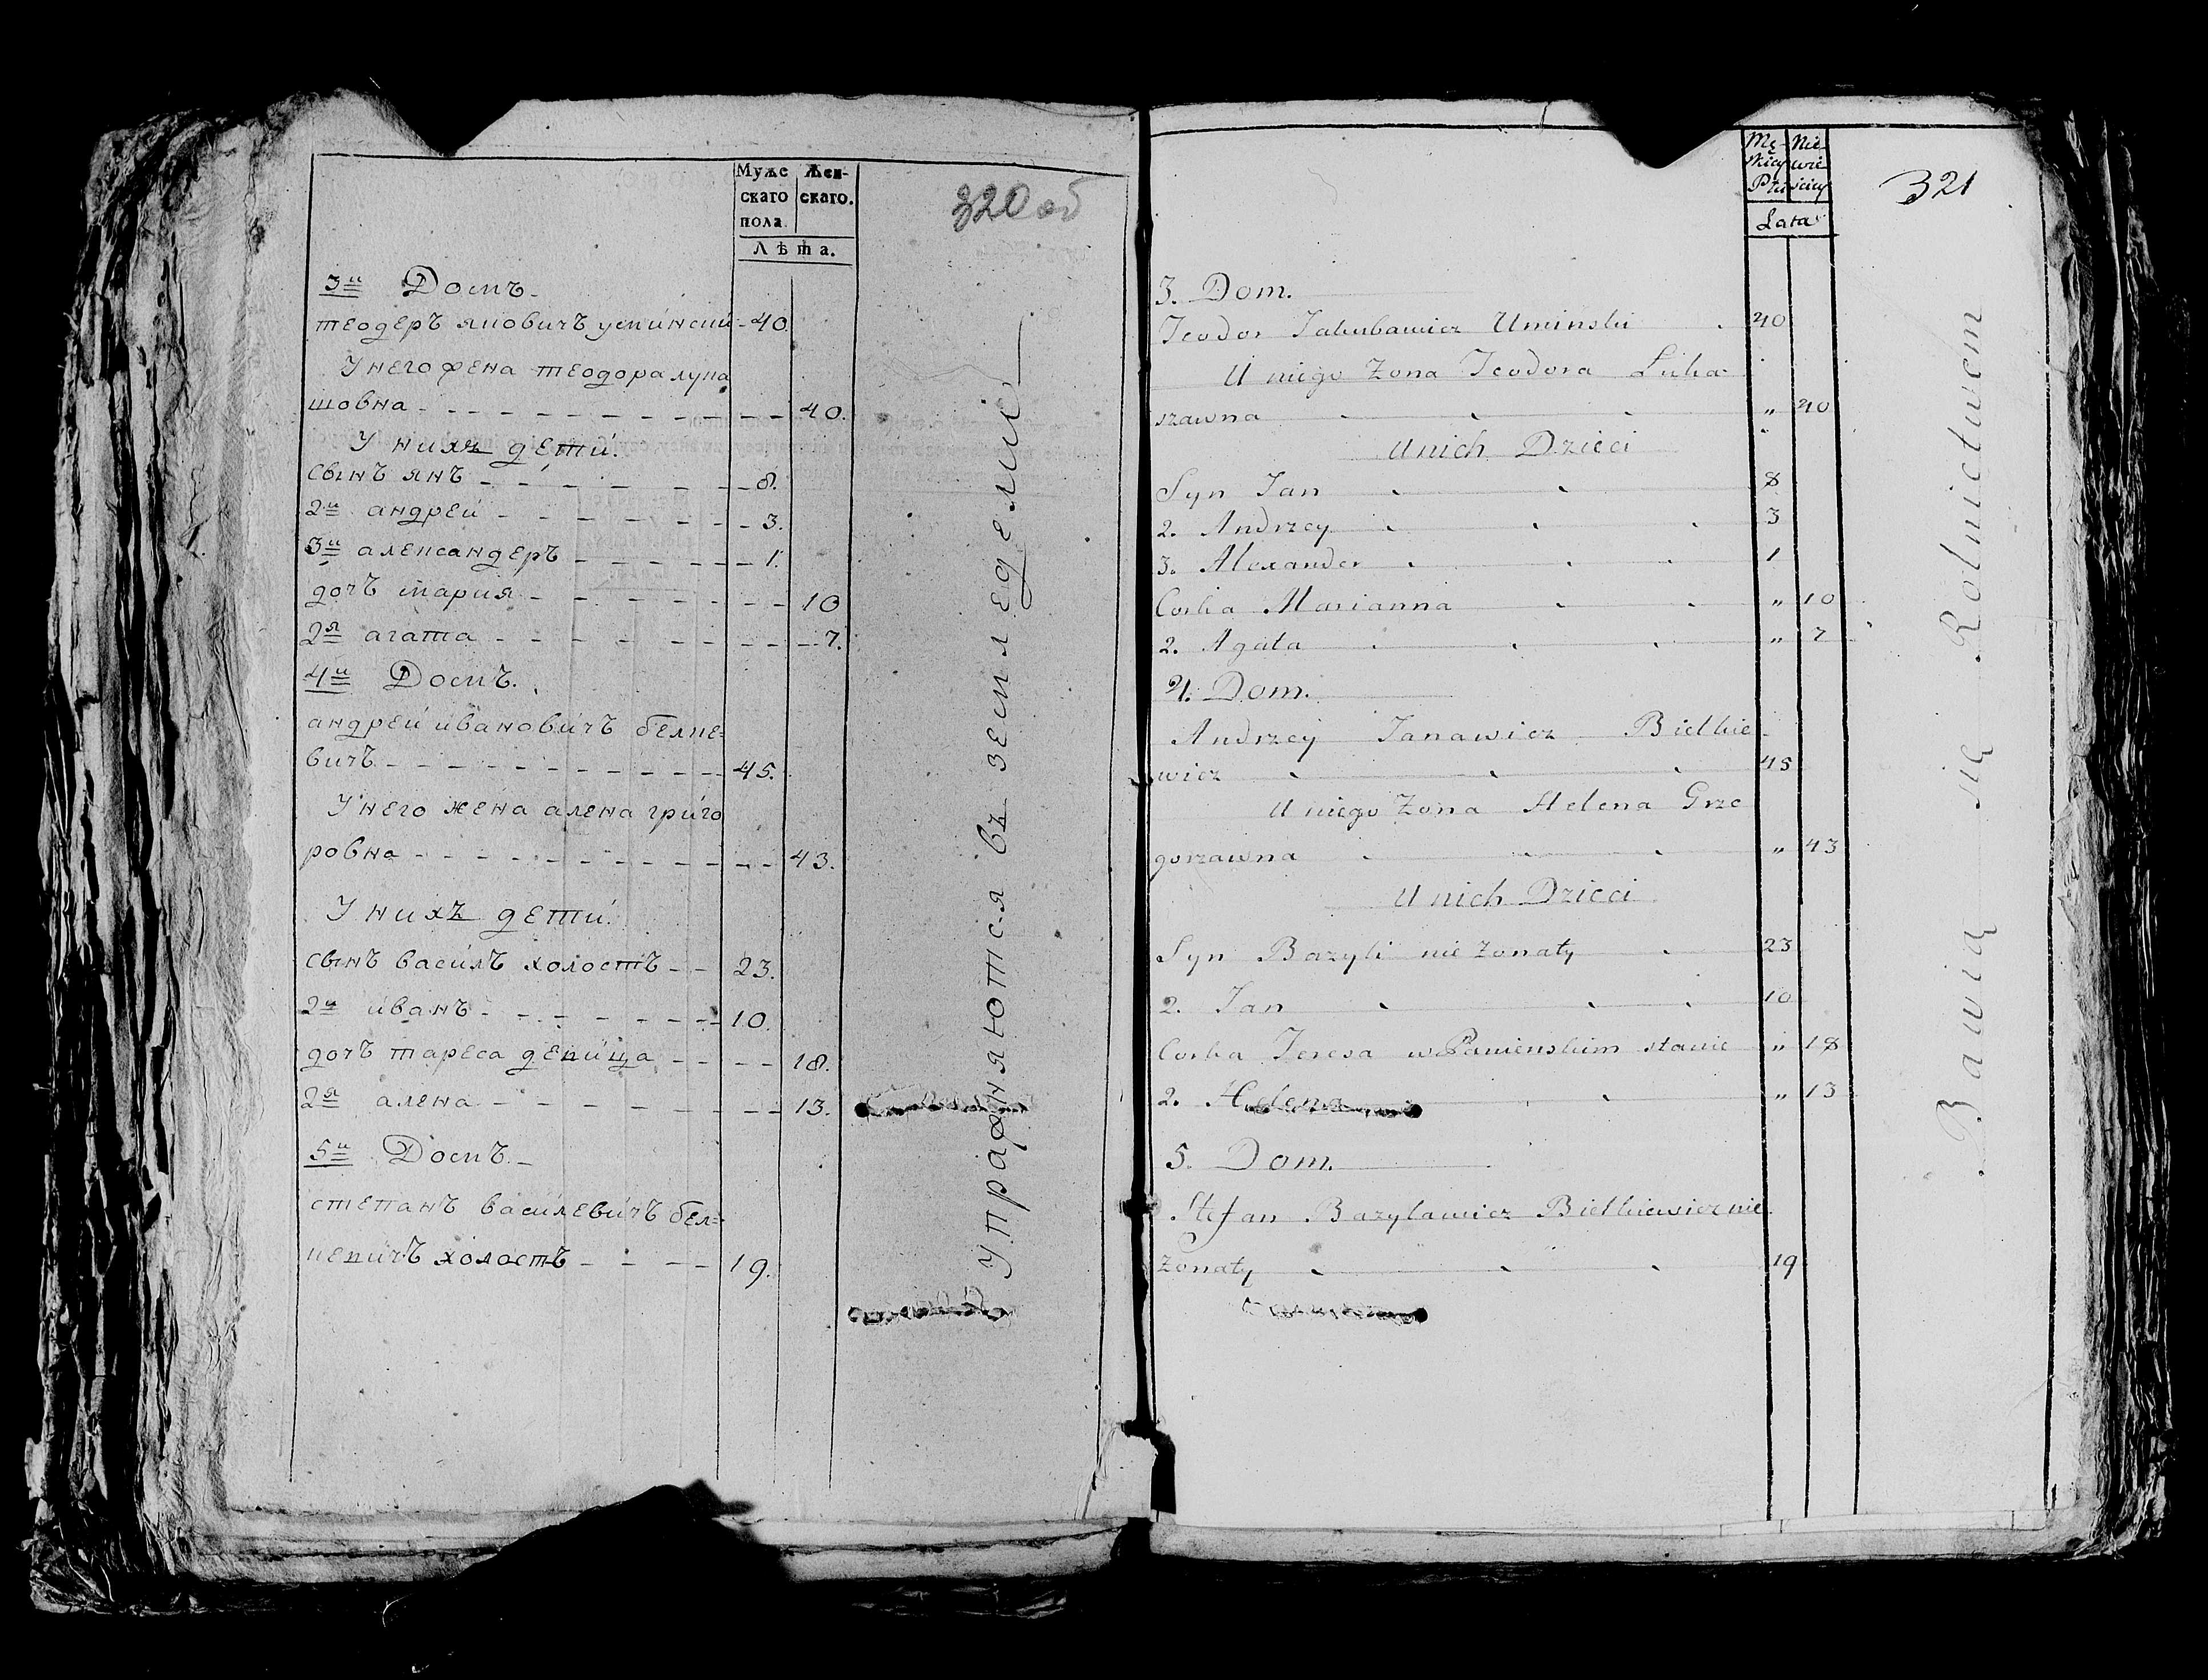 Муже Жен-
скаго скаго.
пола.
Лѣта.
320 об
3й Домъ.
теодеръ яковичъ уминский - 40.
У него жена теодора лука
шовна - 40.
У нихъ дети.
сынъ янъ - 8.
2й андрей - 3.
3й александеръ - 1.
дочъ мария - 10
2я агата - 7.
4й Домъ.
андрей ивановичъ белке=
вичъ - 45.
У него жена алена григо
ровна - 43.
У нихъ дети.
сынъ василъ холостъ - 23.
2й иванъ - 10.
дочъ тареса девица - 18.
2я алена - 13.
5й Домъ.
степанъ василевичъ бел=
кевичъ холостъ - 19.
Упражняются въ земледелии
Mę- Nie-
skiey wie
Płci ściey
Lata
321
3. Dom.
Teodor Jakubawicz Uminski 40
U niego Zona Teodora Luka-
szawna " 40
U nich Dzieci
Syn Jan 8
2. Andrzey 3
3. Alexander 1
Corka Marianna " 10
2. Agata " 7
4. Dom.
Andrzey Janawicz Bielkie-
wicz 45
U niego Zona Helena Grze
gorzawna " 43
U nich Dzieci
Syn Bazyli nie Zonaty 23
2. Jan 10
Corka Teresa w Panienskim stanie " 18
2. Helena " 13
5. Dom.
Stefan Bazylawicz Bielkiewicz nie
Zonaty 19
Bawią się Rolnictwem